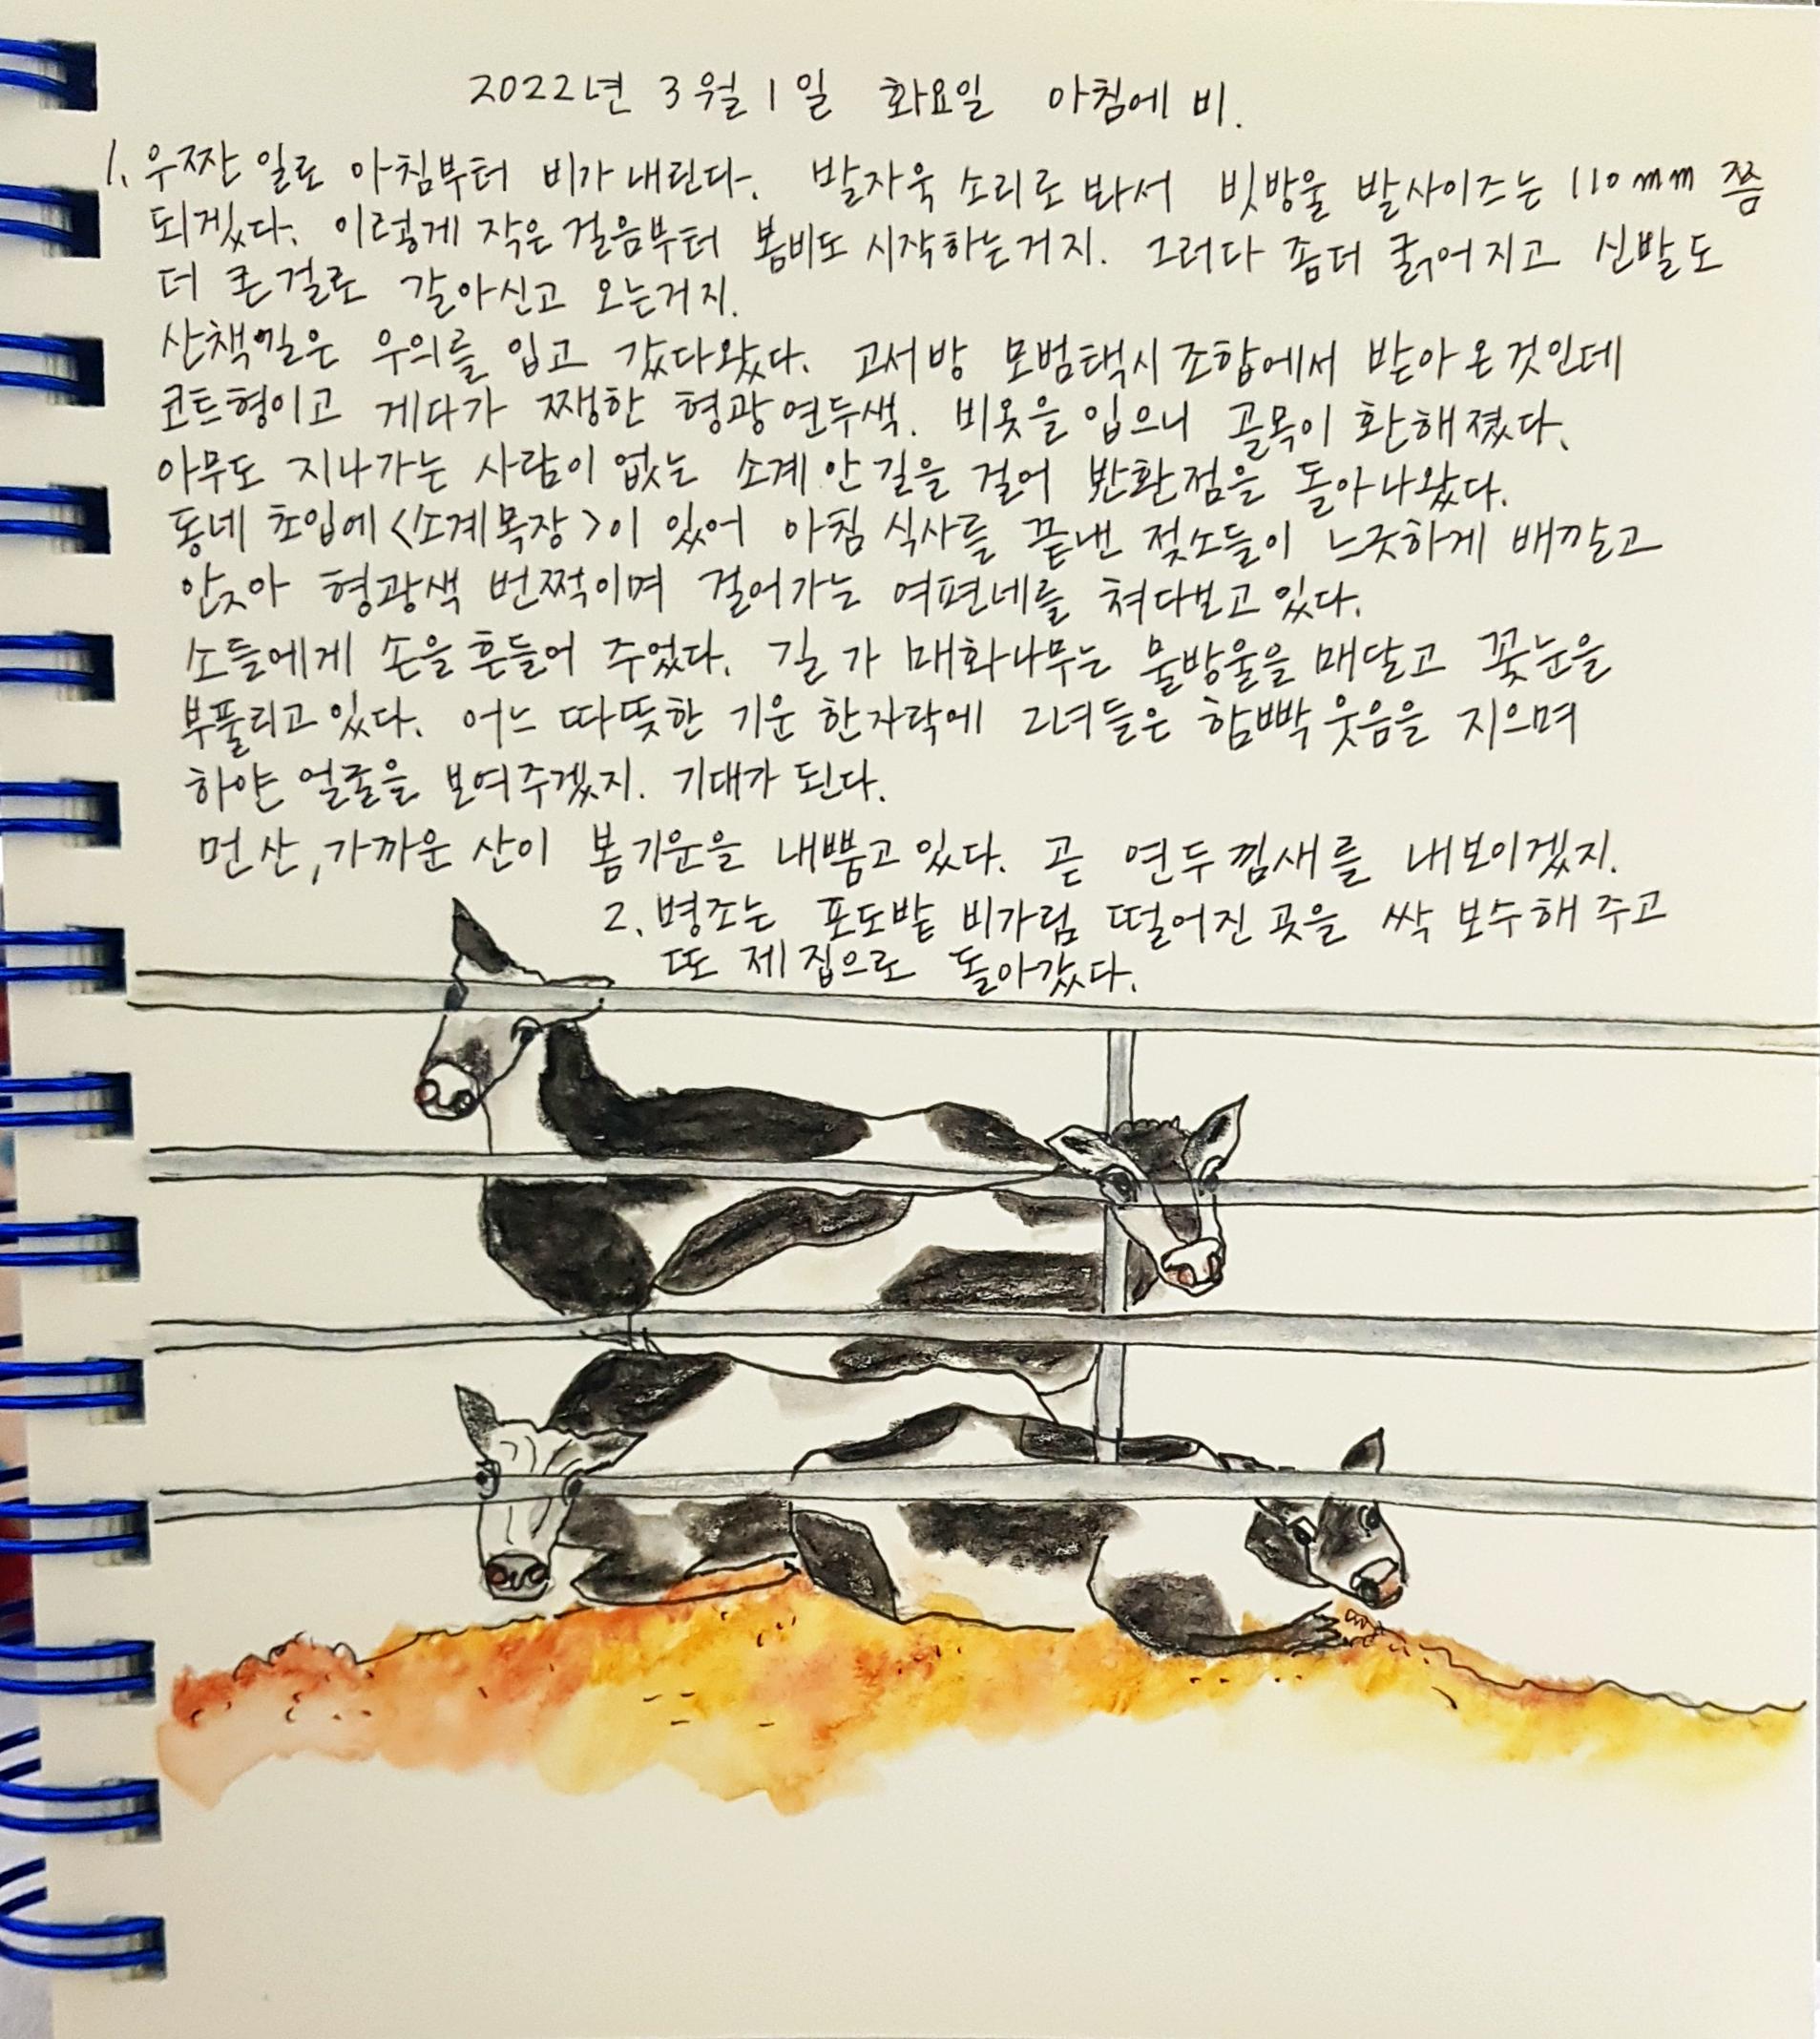 2022년 3월 1일 화요일 아침에 비.
1. 우짠 일로 아침부터 비가 내린다. 발자욱 소리로 봐서 빗방울 발사이즈는 110mm 쯤
되겠다. 이렇게 작은 걸음부터 봄비도 시작하는거지. 그러다 좀더 굵어지고 신발도
더 큰걸로 갈아신고 오는거지.
산책길은 우의를 입고 갔다왔다. 고서방 모범택시 조합에서 받아 온것인데
코트형이고 게다가 쨍한 형광연두색. 비옷을 입으니 골목이 환해졌다.
아무도 지나가는 사람이 없는 소계 안길을 걸어 반환점을 돌아나왔다.
동네 초입에 <소계목장>이 있어 아침 식사를 끝낸 젖소들이 느긋하게 배깔고
앉아 형광색 번쩍이며 걸어가는 여편네를 쳐다보고 있다.
소들에게 손을 흔들어 주었다. 길 가 매화나무는 물방울을 매달고 꽃눈을
부풀리고 있다. 어느 따뜻한 기운 한자락에 그녀들은 함빡 웃음을 지으며
하얀 얼굴을 보여주겠지. 기대가 된다.
먼 산, 가까운 산이 봄기운을 내뿜고 있다. 곧 연두 낌새를 내보이겠지.
2. 병조는 포도밭 비가림 떨어진 곳을 싹 보수해 주고
또 제 집으로 돌아갔다.